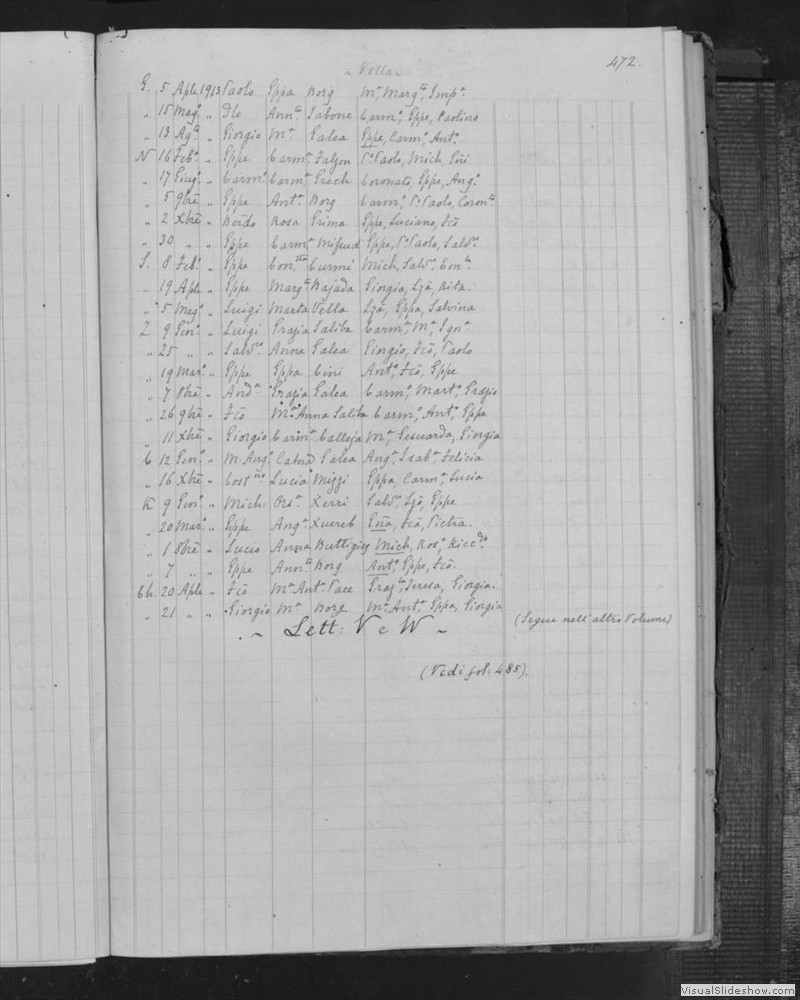 472.
~ Vella ~
G. 5 Aple 1913 Paolo Eppa Borg Mª, Margta, Impª.
" 15 Magº " Dle Annta Sabone Carmª, Eppe, Paolino
" 13 Agto " Giorgio Mª Galea Eppe, Carmª, Antº.
N 16 Febº " Eppe Carmª Falzon Pº Paolo, Mich,
" 17 Giugº " Carmº Carmª Grech Coronato, Eppe, Angª.
" 5 9bre " Eppe Antª Borg Carmº, Pº Paolo,
" 2 Xbre " Rosa Grima Eppe, Luciano, Fcõ
" 30 " " Eppe Carmª Mifsud Eppe, Pº Paolo, Salvª.
S. 8 Febº " Eppe Conta Curmi Mich, Salvª.
" 19 Aple " Eppe Margta Bajada Giorgia, Lzã, Rita.
" 5 Magº " Luigi Marta Vella Lzã, Eppa, Salvina
Z 9 Genº " Luigi Grazia Saliba Carmª, Mª, Ignª.
" 25 " " Salvre Anna Galea Giorgio, Fcõ, Paolo
" 19 Marº " Eppe Eppa Cini Antº, Fcõ, Eppe
" 7 8bre " Andª Grazia Galea Carmº, Martº, Grazio
" 26 9bre " Fcõ Mª Anna Saliba Carmº, Antº, Eppe
" 11 Xbre " Giorgio Carmª Calleja Mª, Giorgia
C 12 Genº " M. Angº Galea Angª, Isabª, Felicia
" 16 Xbre " Costno Lucia Mizzi Eppa, Carmª, Lucia
K 9 Genº " Mich: Orsª Xerri Salvª, Lzõ, Eppe
" 20 Marº " Eppe Angª Xuereb Fcõ, Pietra.
" 1 8bre " Lucio Anna Buttigieg Mich, Rosª, Riccdo
" 7 " " Eppe Annta Borg Antº, Eppe, Fcõ.
Ch. 20 Aple " Fcõ Mª Antª Pace Teresa, Giorgia.
" 21 " " Giorgio Mª Borg Mª Antª, Eppa, Giorgia
~ Lett: V e W ~ (Segue nell'altro Volume)
(Vedi fol: 485).
VisualSlideshow.com